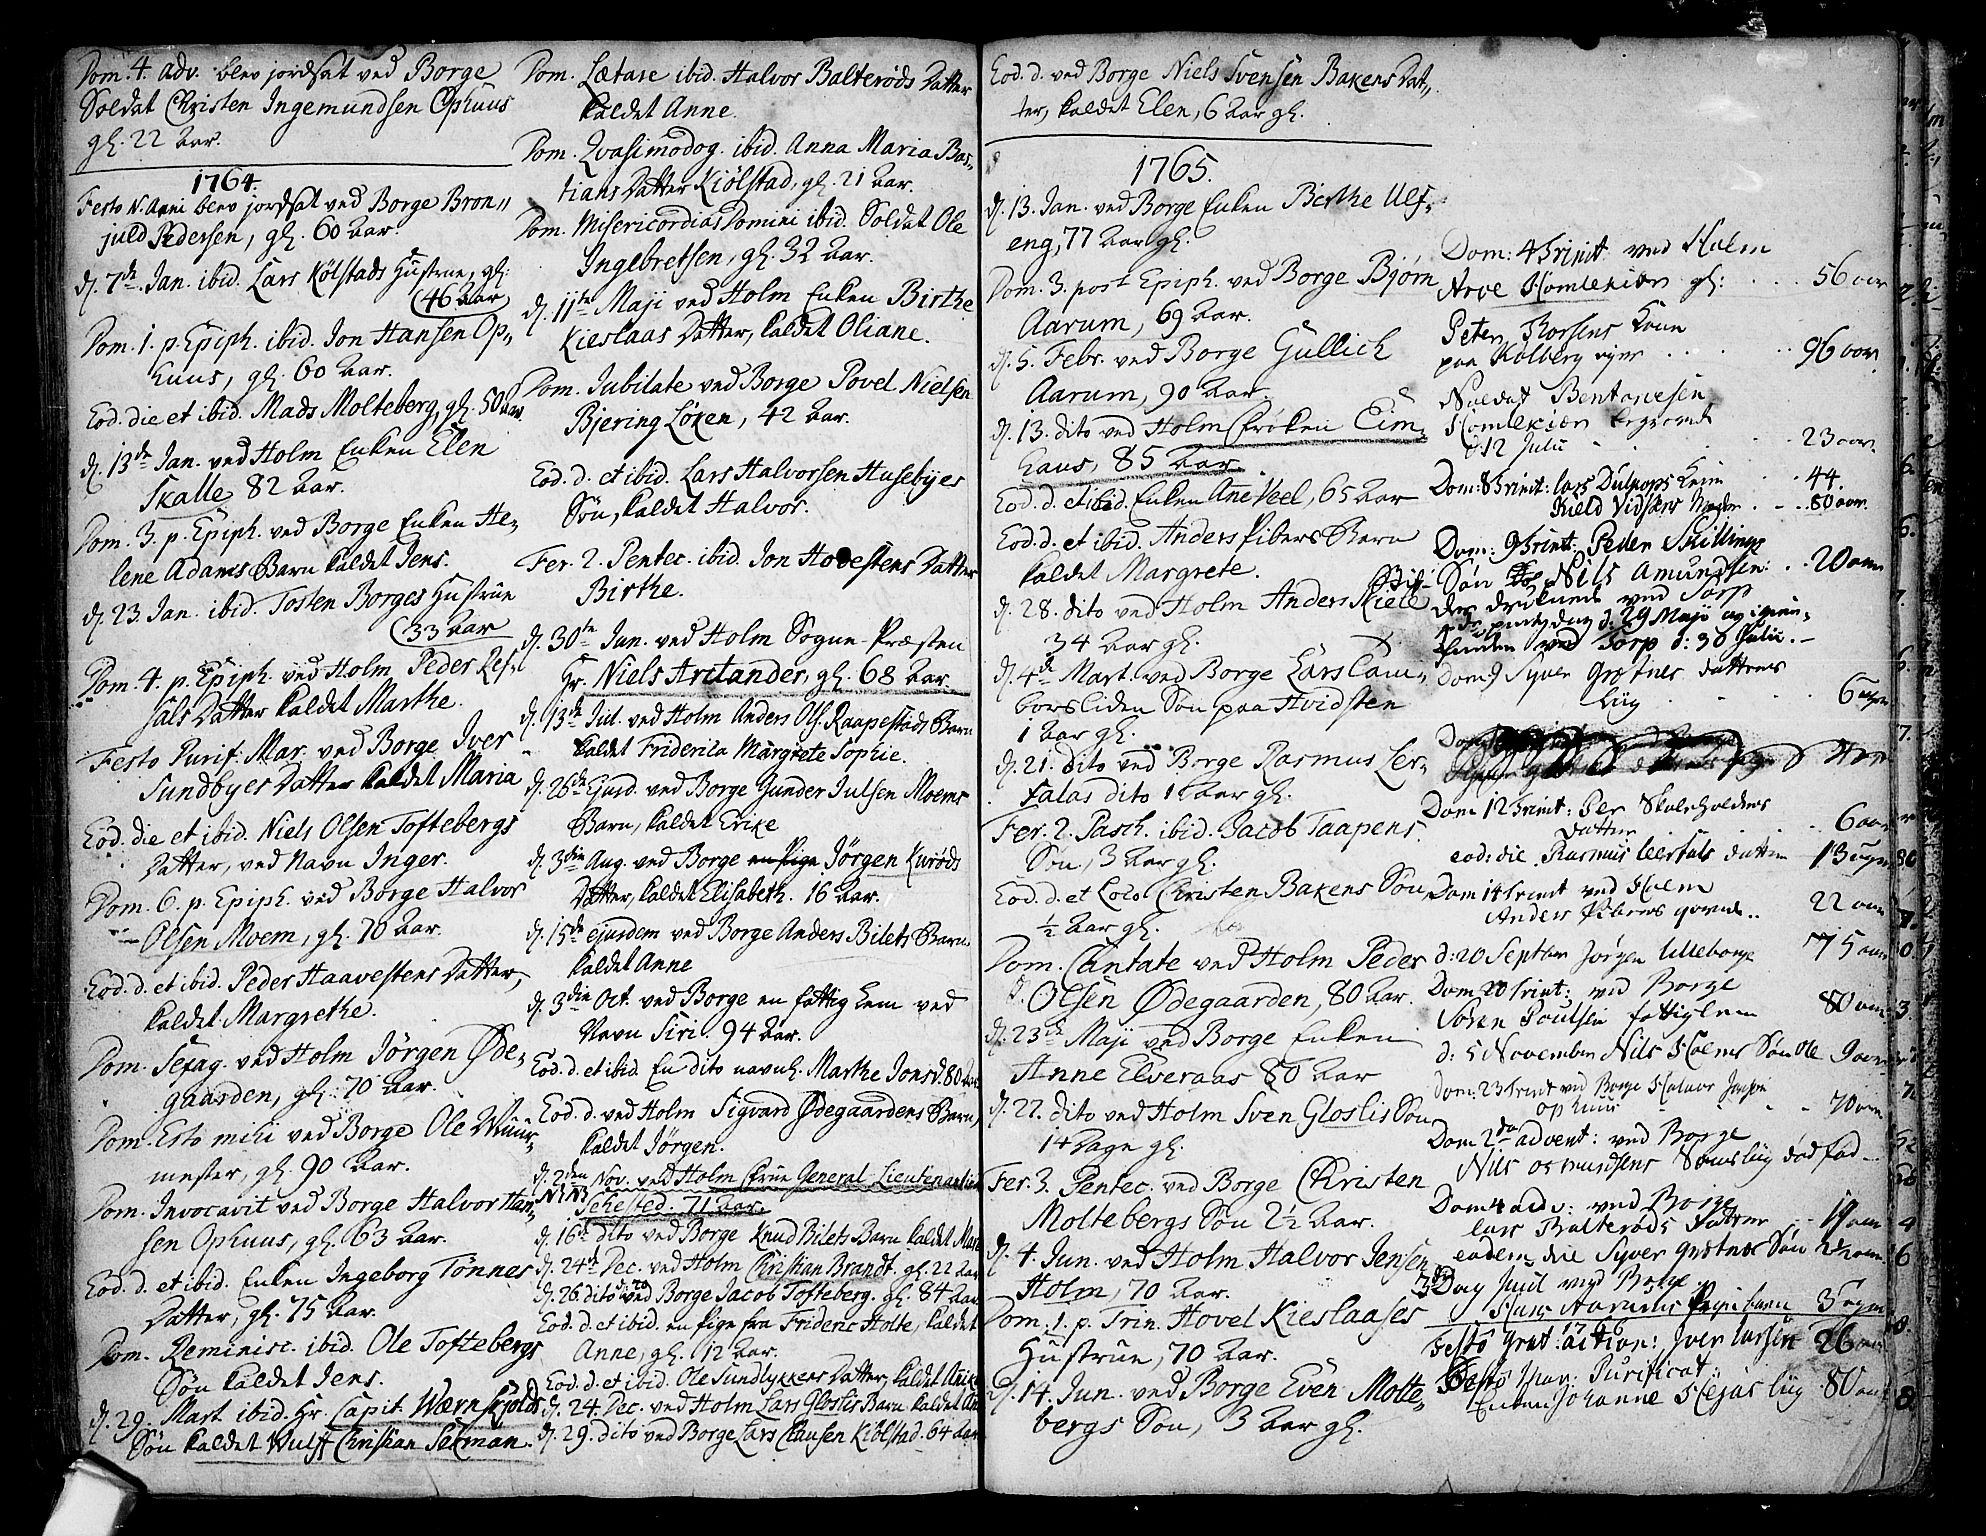 Dom. 4. Adv. blev jordsat ved Borge
Soldat Christen Ingemundsen Ophuus
gl. 22 Aar.
1764.
Festo N. Anni blev jordsat ved Borge Bron//
juld Pedersen, gl. 60 Aar.
d. 7de Jan. ibid. Lars Kölstads Hustrue, gl.
(46 Aar
Dom. 1. p. Epiph. ibid. Jon Hansen Op//
huus, gl. 60 Aar.
Eod. die et ibid. Mads Molteberg, gl. 50 Aar.
d. 13de Jan. ved Holm Enken Elen
Skalle 82 Aar.
Dom. 3. p. Epiph. ved Borge Enken He//
lene Adams Barn kaldet Jens.
d. 23. Jan. ibid. Tosten Borges Hustrue
(33 Aar
Dom. 4. p. Epiph. ved Holm Peder Ref//
sals Datter kaldet Marthe.
Festo Purif. Mar. ved Borge Iver
Sundbyes Datter kaldet Maria
Eod. die et ibid. Niels Olsen Toftebergs
Datter, ved Navn Inger.
Dom. 6. p. Epiph. ved Borge Halvor
Olsen Moem, gl. 70 Aar.
Eod. d. et ibid. Peder Haavestens Datter,
kaldet Margrethe.
Dom. Sexag. ved Holm Jörgen Øde//
gaarden, gl. 70 Aar.
Dom. Esto mihi ved Borge Ole Muur//
mester, gl. 90 Aar.
Dom. Invocavit ved Borge Halvor Han//
sen Ophuus, gl. 63 Aar.
Eod. d. et ibid. Enken Ingeborg Tönnes
Datter, gl. 75 Aar.
Dom. Reminisc. ibid. Ole Toftebergs
Sön kaldet Jens.
d. 29. Mart. ibid. Hr. Capit. Wærnskjolds
Sön kaldet Wulff Christian Herman.
Dom. Lætare ibid. Halvor Balteröds Datter
kaldet Anne.
Dom. Qvasimodog. ibid. Anna Maria Bas//
tians Datter Kiölstad, gl. 21 Aar.
Dom. Misericordias Domini ibid. Soldat Ole
Ingebretsen, gl. 32 Aar.
d. 11te Maji ved Holm Enken Birthe
Kieslaas Datter, kaldet Oliane.
Dom. Jubilate ved Borge Povel Nielsen
Bjering Löken, 42 Aar.
Eod. d. et ibid. Lars Halvorsen Husebyes
Sön, kaldet Halvor.
Fer. 2. Pentec. ibid. Jon Hovestens Datter
Birthe.
d. 30te Jun. ved Holm Sogne-Præsten
Hr. Niels Arctander, gl. 68 Aar.
d. 13de Jul. ved Holm Anders Ols. Raapestads Barn
kaldet Friderica Margrete Sophie.
d. 26de Ejusd. ved Borge Gunder Julsen Moems
Barn, kaldet Erike
d. 3die Aug. ved Borge en Pige Jörgen Kuröds
Datter, kaldet Elisabeth. 16 Aar.
d. 15de ejusdem ved Borge Anders Bilets Barn
kaldet Anne
d. 3die Oct. ved Borge en fattig Lem ved
Navn Siri. 94 Aar.
Eod. d. et ibid. En dito navnl. Marthe Jonsd. 80 Aar
Eod. d. ved Holm Sigvard Ødegaardens Barn,
kaldet Jörgen.
d. 2den Nov. ved Holm Frue General Lieutinantinde
Sehested. 71 Aar.
d. 16de dito ved Borge Knud Bilets Barn kaldet
d. 24de Dec. ved Holm Christian Brandt. gl. 22 Aar
d. 26 dito ved Borge Jacob Tofteberg. gl. 84 Aar
Eod. d. et ibid. en Pige fra Frideric Holte, kaldet
Anne, gl. 12 Aar.
Eod. d. et ibid. Ole Sundlykkers Datter, kaldet
d. 24. Dec. ved Holm Lars Gloslis Barn kaldet
d. 29. dito ved Borge Lars Clausen Kiölstad. 64 Aar
Eod. d. ved Borge Niels Svensen Bakens Dat//
ter, kaldet Elen, 6 Aar gl.
1765.
d. 13. Jan. ved Borge Enken Berthe Ulf//
eng, 77 Aar gl.
Dom. 3. post Epiph. ved Borge Bjørn
Aarum, 69 Aar.
d. 5. Febr. ved Borge Gullich
Aarum, 90 Aar.
d. 13. dito ved Holm Frøken Eim//
haus, 85 Aar.
Eod. d. et ibid. Enken Ane Veel, 65 Aar
Eod. d. et ibid. Anders Pibers Barn
kaldet Margrete.
d. 28. dito ved Holm Anders Kiele
34 Aar gl.
d. 4de Mart. ved Borge Lars Cam//
borsliden Søn paa Hvidsten
1 Aar gl.
d. 21. dito ved Borge Rasmus Ler//
falas dito 1 Aar gl.
Fer. 2. Pasch. ibid. Jacob Taapens
Søn, 3 Aar gl.
Eod. d. et Loco Christen Bakens Søn
½ Aar gl.
Dom. Cantate ved Holm Peder
Olsen Ødegaarden, 80 Aar.
d. 23de Maji ved Borge Enken
Anne Elveraas 80 Aar
d. 27. dito ved Holm Sven Gloslis Søn
14 Dage gl.
Fer. 3. Pentec. ved Borge Christen
Moltebergs Søn 2½ Aar.
d. 4. Jun. ved Holm Halvor Jensen
Holm, 70 Aar.
Dom. 1. p. Trin. Hovel Kieslaases
Hustrue, 70 Aar.
d. 14. Jun. ved Borge Even Molte//
bergs Søn, 3 Aar gl.
Dom: 4 Trinit ved Holm
Arve Homlekiær gl: 56 aar
Peter Thorsens Kone
paa Kolberg 96 aar
Soldat Bent
Homlekiær begravet
d 12 Julii 23 aar
Dom: 8 Trinit: lars 44.
Kield Vidstens 80 aar.
Dom: 9 Trinit: Peder Skilling
Søn Nils Amundsen: 20 aar
der druknede ved Torp
d. 29 Maji og igien
funden ved Torp d: 30 Julii.
Dom: 9 Syver Grøtnes datters
Liig 6 uger
Dom 12 Trinit: Per Skoleholders
datter 6 aar
eod: die Rasmus leerfals datter 13 uger
Dom 14 Trinit ved Holm
Anders 22 aar
d: 20 Septber Jørgen Ulleborge 75 aar
Dom 20 Trinit: ved Borge
Søren Poulsen fattiglem 80 aar
d: 5 November Nils Holms Søn Ole 9 aar
Dom: 23 Trinit ved Borge Halvor
ophuus 70 aar
Dom 2da advent: ved Borge
Nils osmundsens Søns liig dødfød
Dom 4 adv: ved Borge
lars Balterøds datter 1 aar
eadem die Syver grøtnes Søn 2½ aar
3 Dag Juul ved Borge
Hans Aarums Pige barn 3 uger
1766
Festo grat: action: Jver larsen 26
Festo Mar: Purificat:
Enken Johanne Hejas liig 80 aar